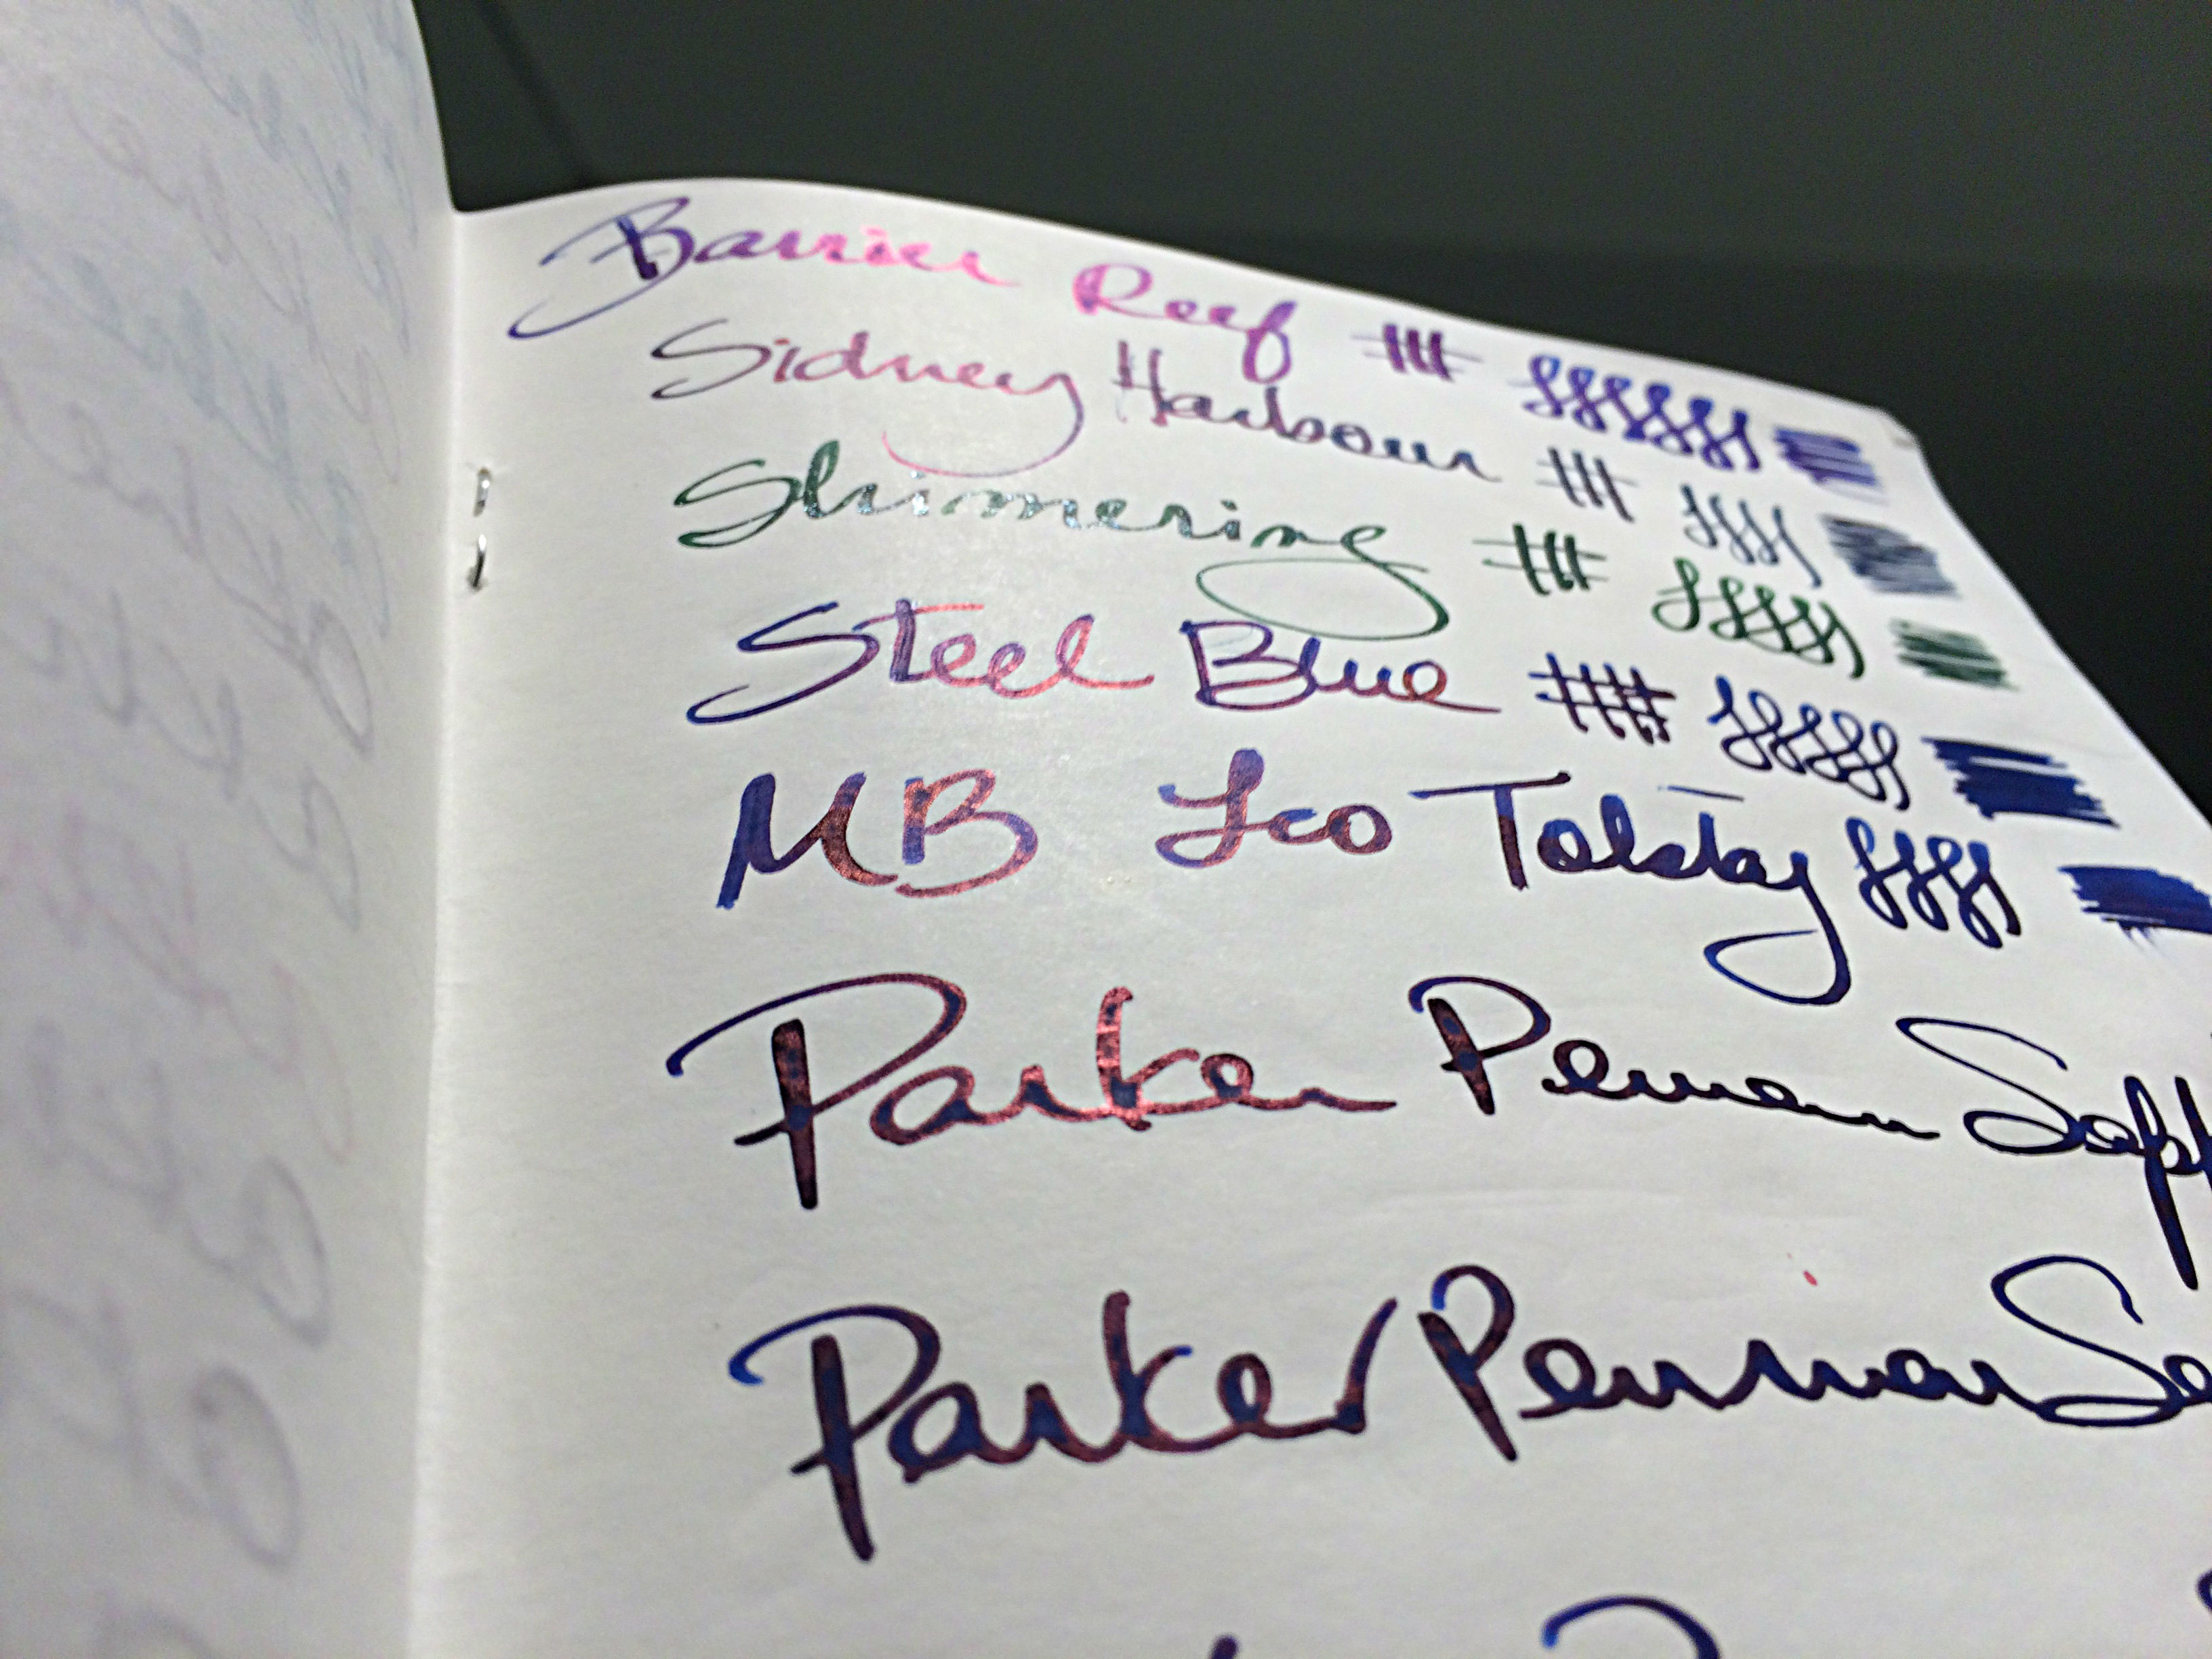 Barrier Reef
Sidney Harbour
Shimering
Steel Blue
MB Leo Tolstoy
Parker Penman Sapp
Parker Penman Sa